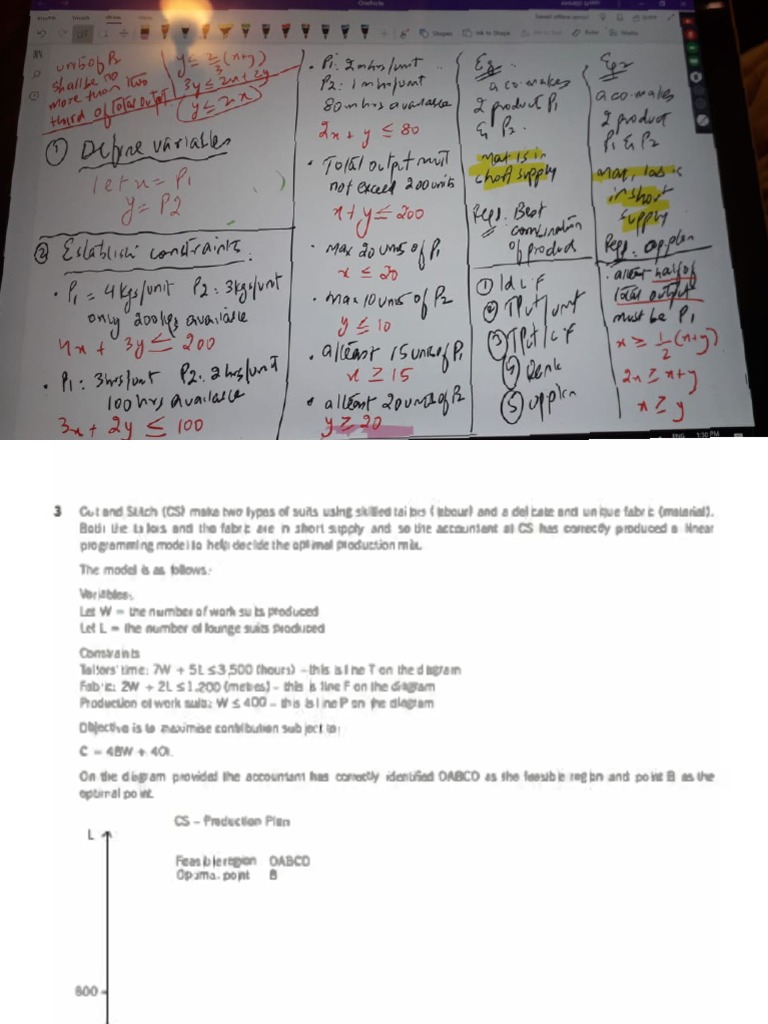 OneNote
Shapes
Ink to Shape
units of P2
shall be no
more than two
third of Total output
y ≤ 2/3 (x+y)
3y ≤ 2x + 2y
y ≤ 2x
① Define variables
let x = P1
y = P2
② Establish constraints.
• P1 = 4kgs/unit P2: 3kgs/unit
only 200kgs available
4x + 3y ≤ 200
• P1: 3hrs/unit P2: 2hrs/unit
100hrs available
3x + 2y ≤ 100
• P1: 2mhrs/unit
P2: 1mhr/unit
80mhrs available
2x + y ≤ 80
• Total output must
not exceed 200 units
x + y ≤ 200
• max 20 units of P1
x ≤ 20
• max 10 units of P2
y ≤ 10
• atleast 15 units of P1
x ≥ 15
• atleast 20 units of P2
y ≥ 20
a co. makes
2 product P1
& P2.
mat is in
short supply
Req. Best
combination
of product
① Id L.F
② TPut/unit
③ TPut/L.F
④ Rank
⑤ opplan
Eg 2
a co. makes
2 product
P1 & P2
in short
supply
Req. opplan
• atleast half of
total output
must be P1
x ≥ 1/2 (x+y)
2x ≥ x+y
x ≥ y
ENG 1:30 PM
3 Cut and Stitch (CS) make two types of suits using skilled tailors (labour) and a delicate and unique fabric (material).
Both the tailors and the fabric are in short supply and so the accountant at CS has correctly produced a linear
programming model to help decide the optimal production mix.
The model is as follows:
Variables:
Let W = the number of work suits produced
Let L = the number of lounge suits produced
Constraints
Tailors' time: 7W + 5L ≤ 3,500 (hours) – this is line T on the diagram
Fabric: 2W + 2L ≤ 1,200 (metres) – this is line F on the diagram
Production of work suits: W ≤ 400 – this is line P on the diagram
Objective is to maximise contribution subject to:
C = 48W + 40L
On the diagram provided the accountant has correctly identified OABCD as the feasible region and point B as the
optimal point.
CS – Production Plan
L
Feasible region OABCD
Optimal point B
800